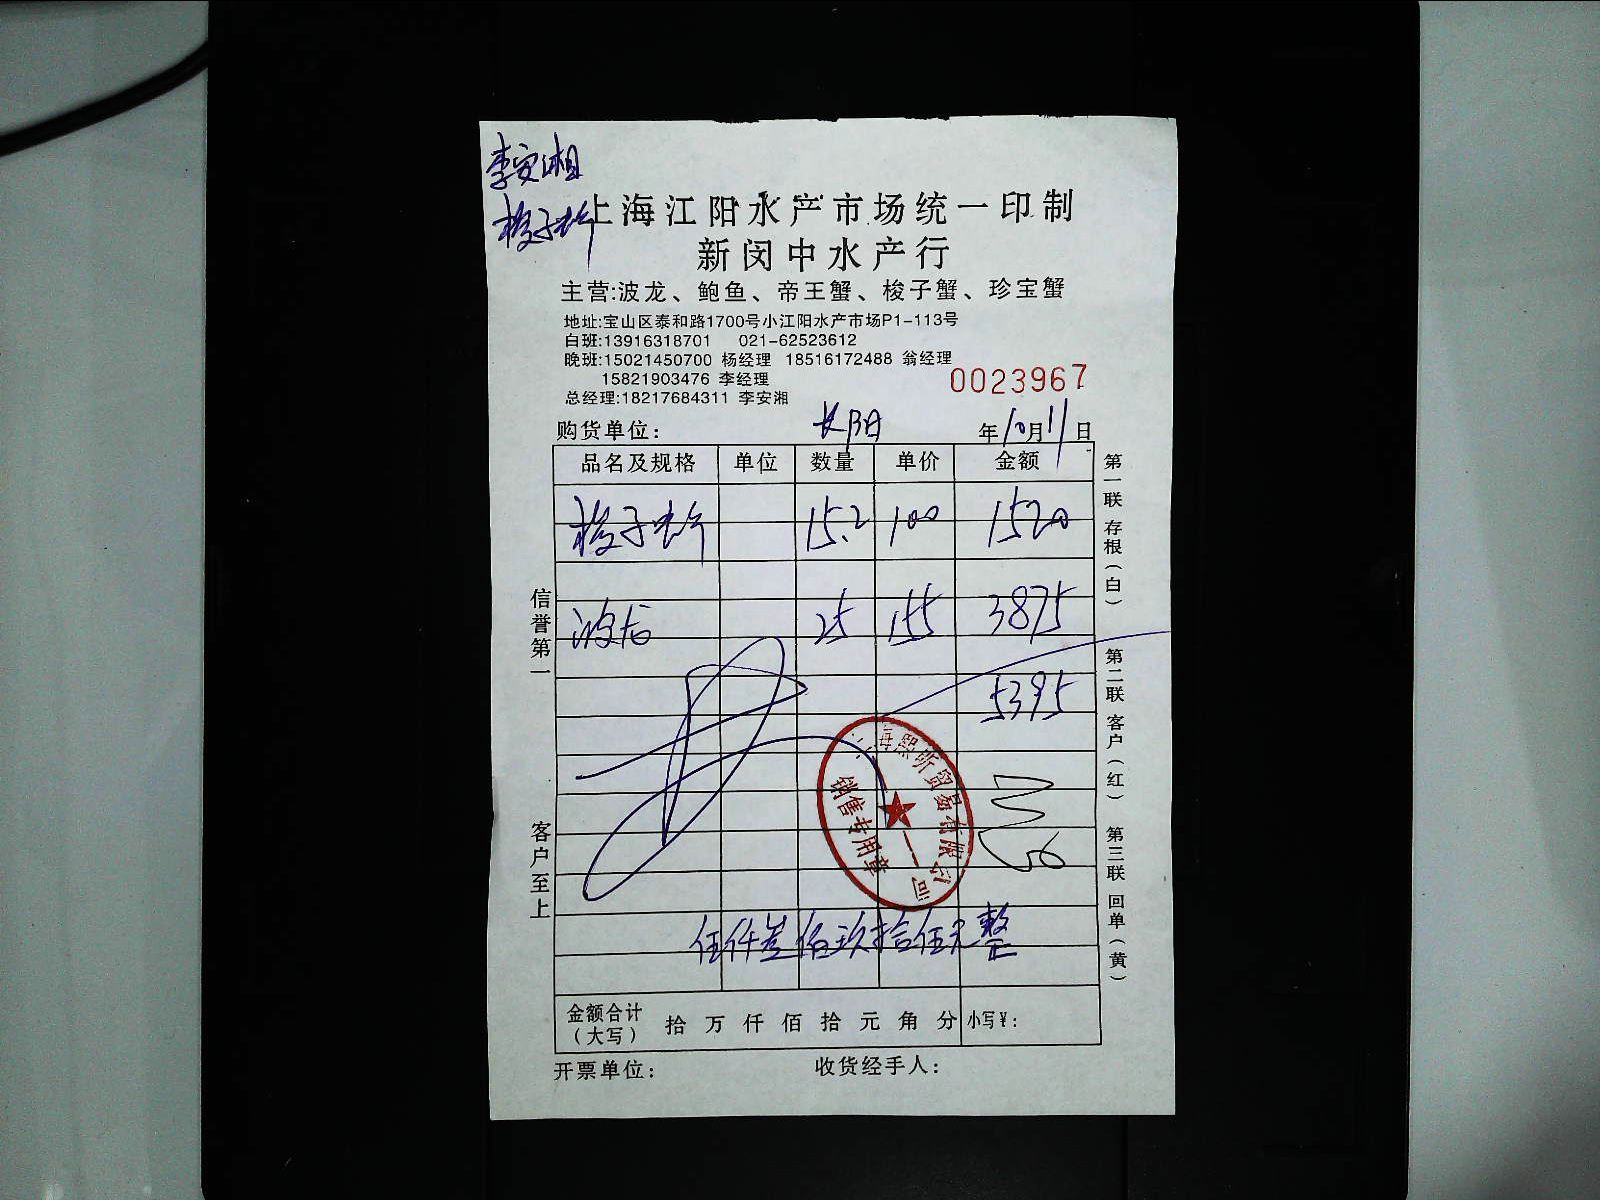 李安湘
梭子蚧
上海江阳水产市场统一印制
新闵中水产行
主营:波龙、鲍鱼、帝王蟹、梭子蟹、珍宝蟹
地址:宝山区泰和路1700号小江阳水产市场P1-113号
白班:13916318701 021-62523612
晚班:15021450700 杨经理 18516172488 翁经理
15821903476 李经理
0023967
总经理:18217684311 李安湘
购货单位: 长阳 年10月11日
品名及规格 单位 数量 单价 金额
梭子蚧 15.2 100 1520
波龙 25 155 3875
5395
伍仟叁佰玖拾伍元整
金额合计(大写) 拾 万 仟 佰 拾 元 角 分 小写¥:
开票单位: 收货经手人:
信誉第一
客户至上
第一联 存根(白)
第二联 客户(红)
第三联 回单(黄)
贸易有限公司
销售专用章